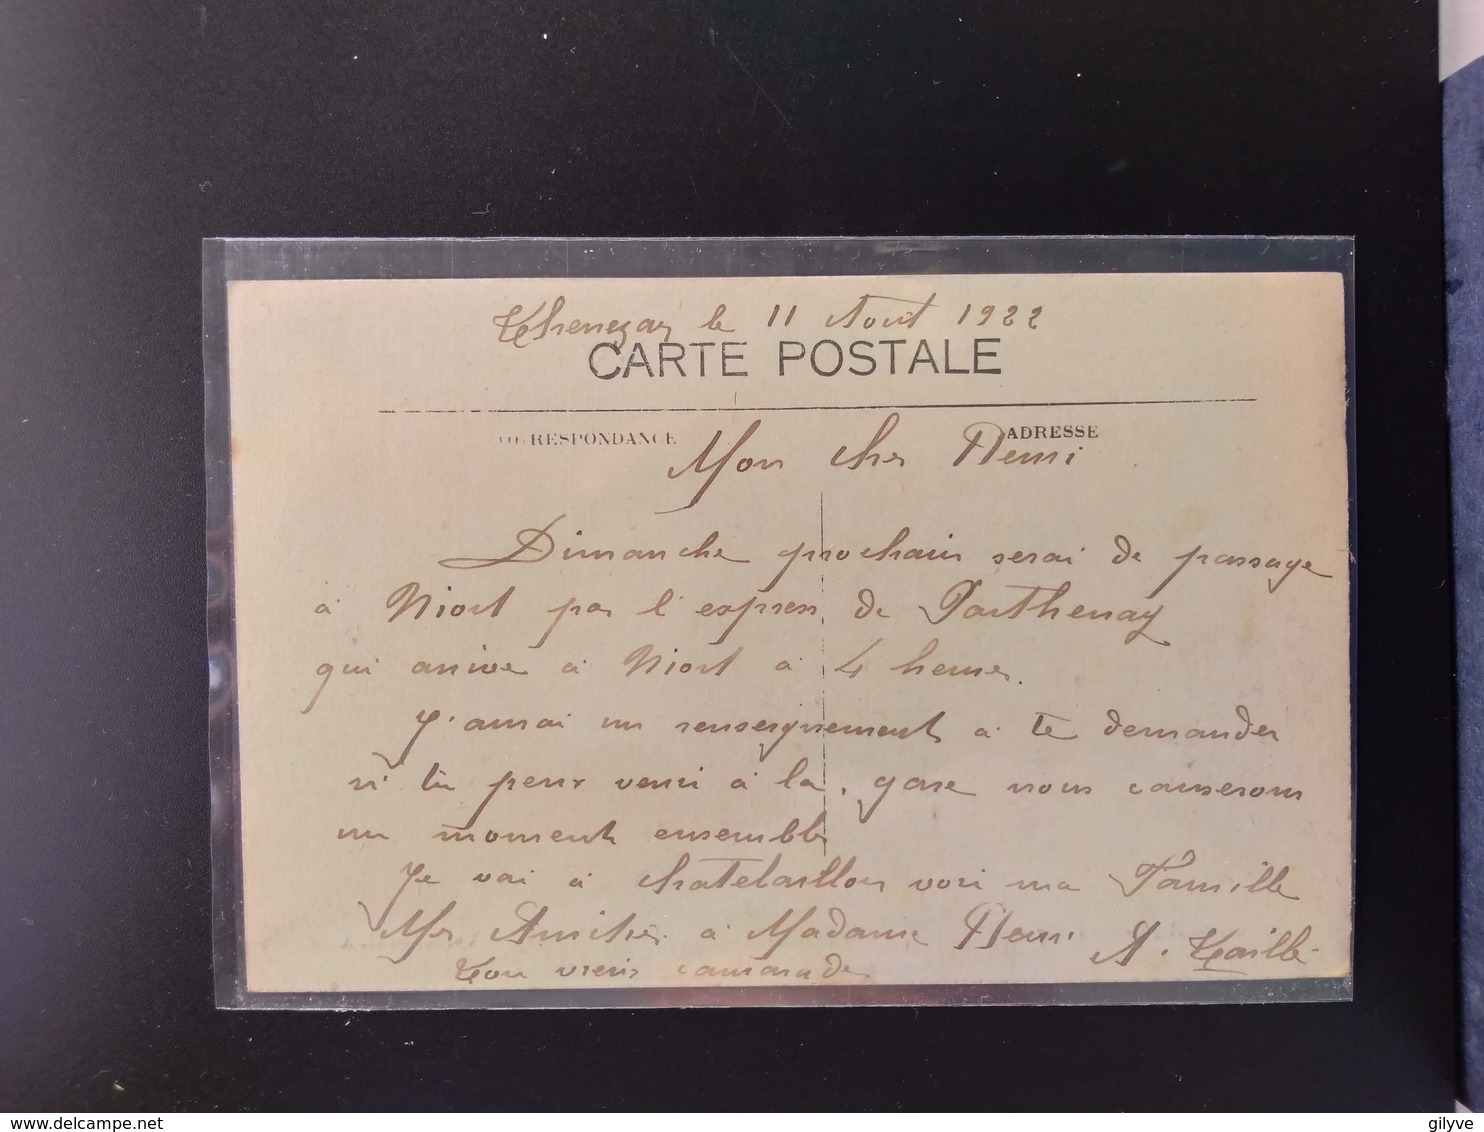 Thenezay le 11 Aout 1922
CARTE POSTALE
CORRESPONDANCE
ADRESSE
Mon cher Henri
Dimanche prochain serai de passage
à Niort par l'express de Parthenay
qui arrive à Niort à 4 heures.
J'aurai un renseignement à te demander
si tu peux venir à la gare nous causerons
un moment ensemble
Je vai à chatelaillon voir ma Famille
Mes Amitiés à Madame Henri
Ton vieux camarade
gilyve